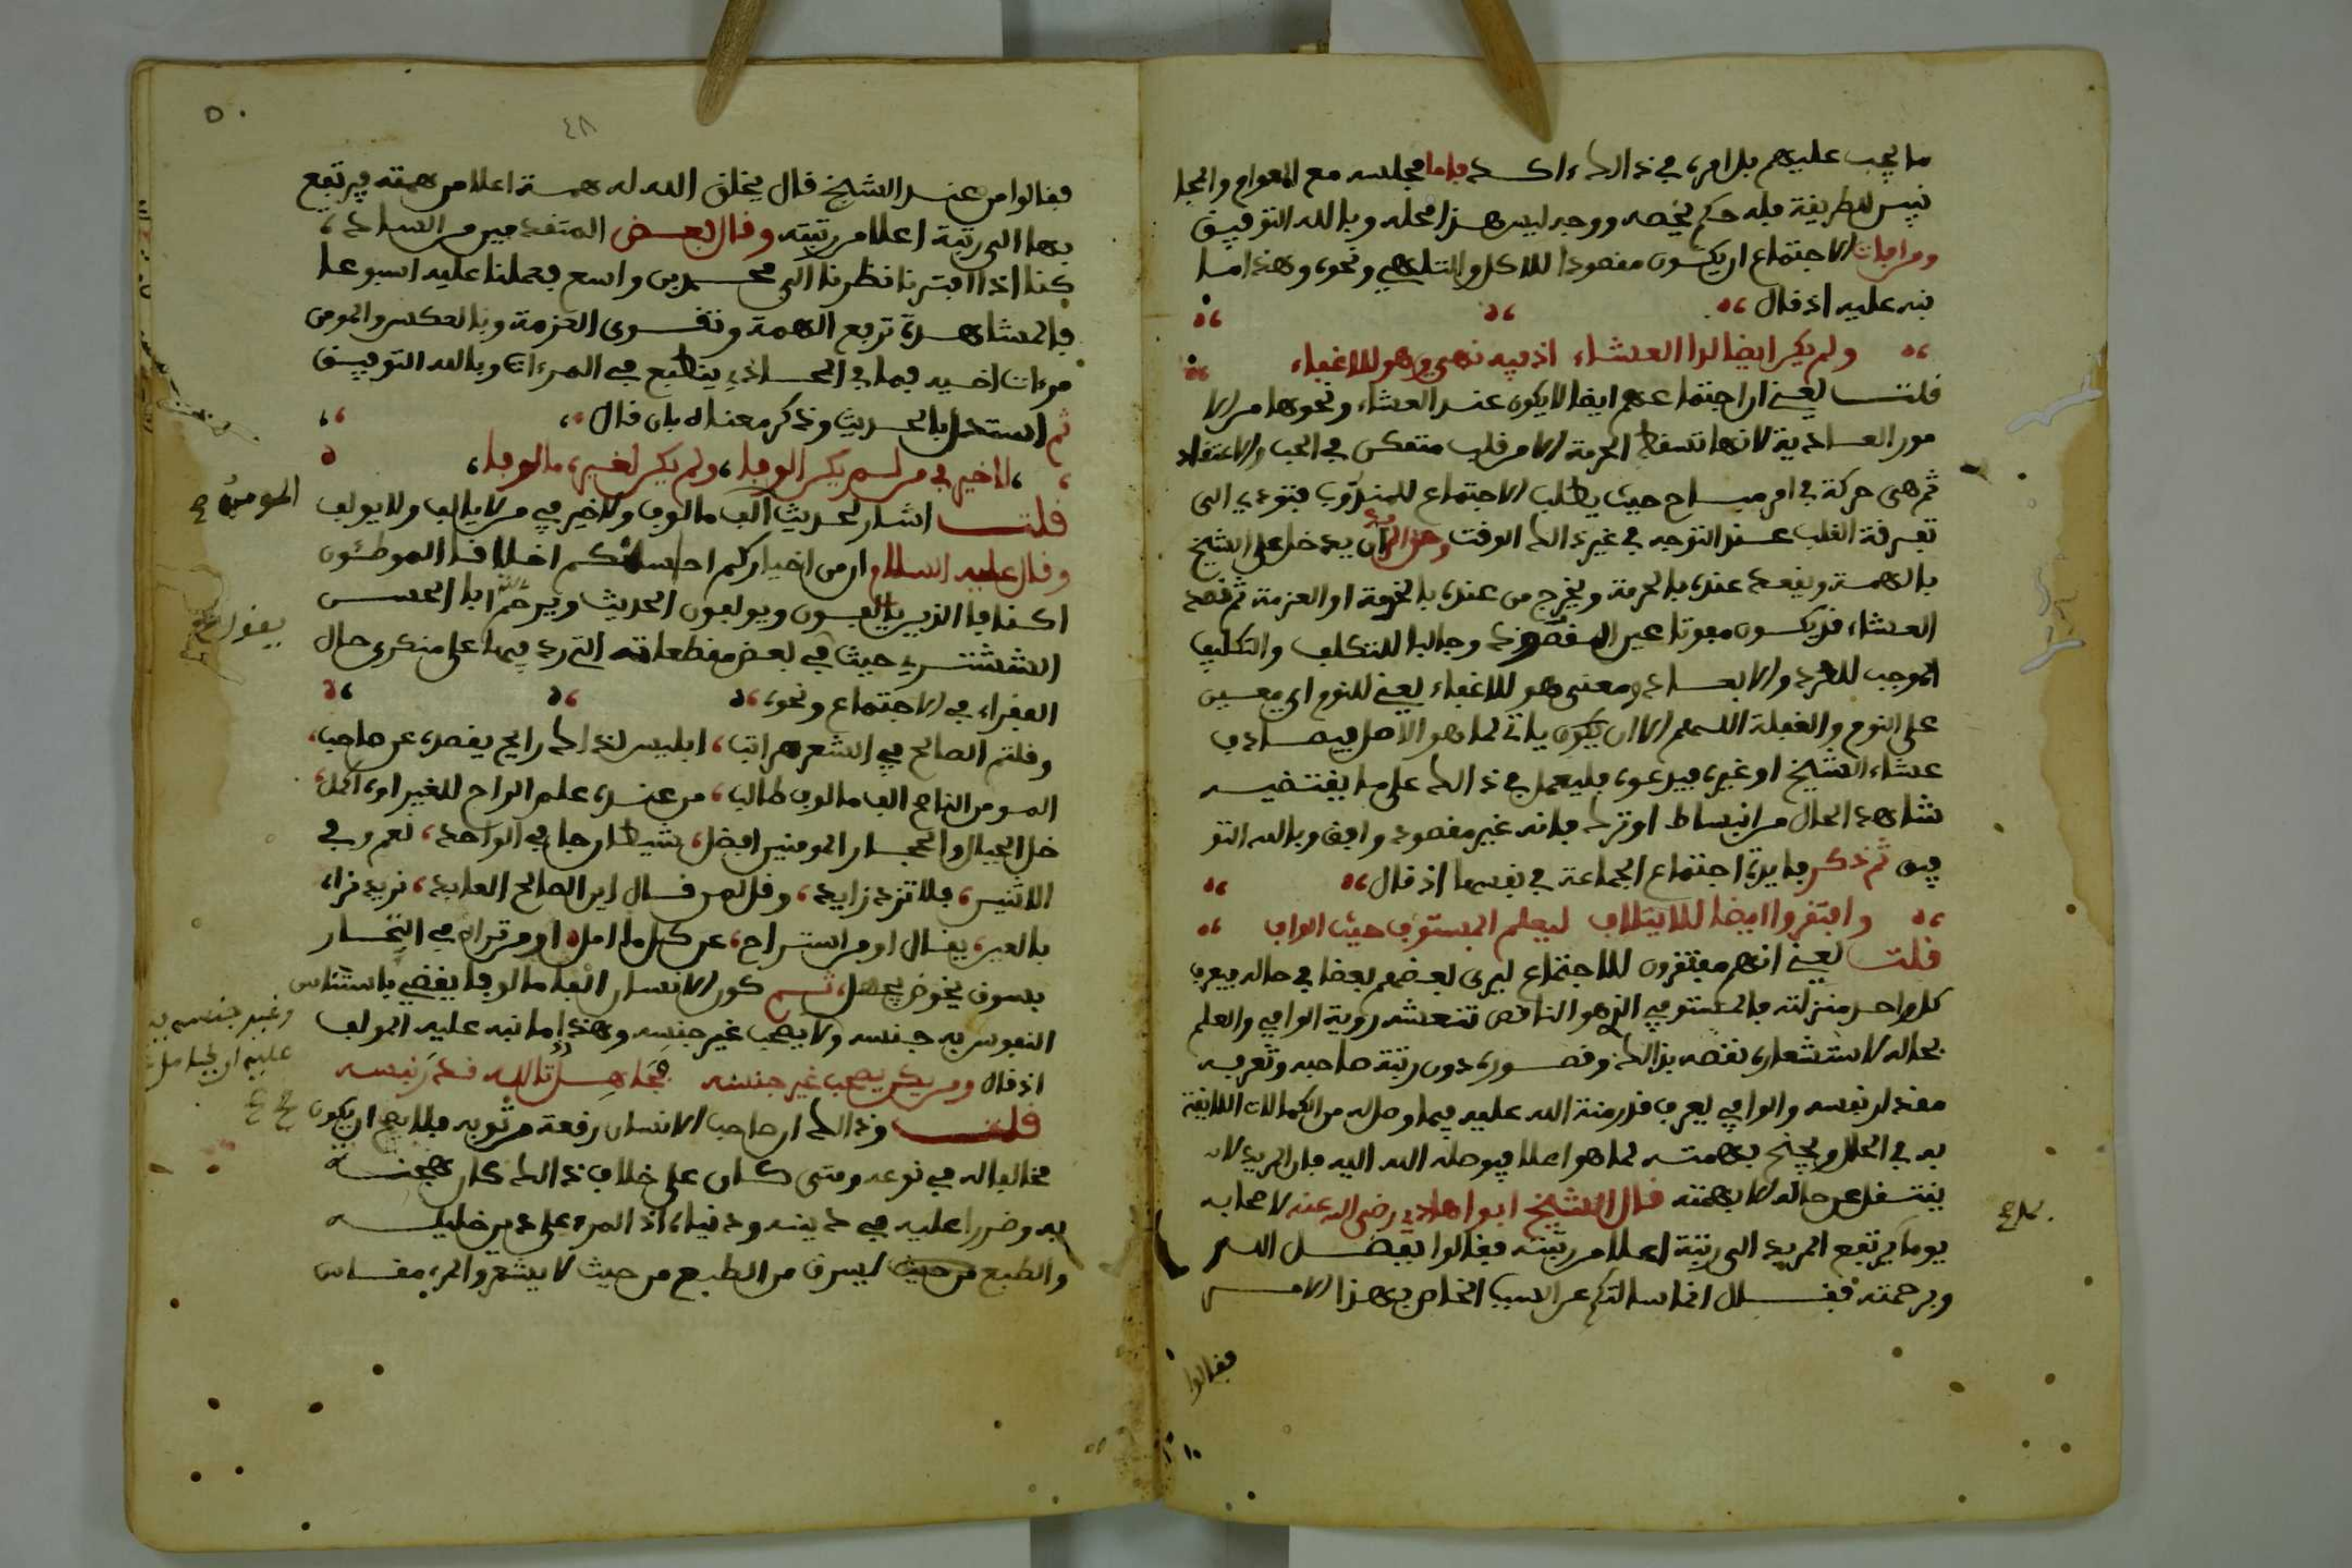 ما يجب عليهم بل امره في ذالك ءاكد فاما مجلسه مع العوام والمجا
نبين للطريقة فله حكم يخصه ووجه ليس هذا محله وبالله التوفيق
ومن افات الاجتماع ان يكون مقصودا للاكل والتلهي ونحوه وهذا ما
نبه عليه اذ قال
ولم يكن ايضا لدا العشاء اذ فيه نهي وهو للاغفاء
قلت يعني ان اجتماعهم ايضا لا يكون عند العشاء ونحوها من الا
مور العادية لانها تسقط الحرمة الا من قلب متمكن في الحب والاعتقاد
ثم هى حركة في امر مباح حيث يطلب الاجتماع للمندوب فتودي الى
تفرقة القلب عند التوجه في غير ذالك الوقت وحق المريد ان يدخل على الشيخ
بالهمة ويقعد عنده بالحرمة ويخرج من عنده بالخدمة او العزمة ثم قصد
العشاء قد يكون مفوتا عين المقصود وجالبا للتكلف والتكليف
الموجب للطرد والابعاد ومعنى هو للاغفاء يعني للنوم اى معين
على النوم والغفلة اللهم الا ان يكون ياتي لما هو الاصل فيصادف
عشاء الشيخ او غيره فيدعوه فليعمل في ذالك على ما يقتضيه
شاهد الحال من انبساط او ترك فانه غير مقصود وافق وبالله التو
فيق ثم ذكر فايدة اجتماع الجماعة في نفسها اذ قال
وافتقروا ايضا للايتلاف ليعلم المستوف حيث الواف
قلت يعني انهم مفتقرون للاجتماع ليرى بعضهم بعضا في حاله فيعرف
كل واحد منزلته فالمستوفي الذي هو الناقص تنعشه روية الوافي والعلم
بحاله لاستشعاره نقصه بذالك وقصوره دون رتبة صاحبه وتعرفه
مقدار نفسه والوافي يعرف قدر منة الله عليه فيما وصل له من الكمالات اللايقة
به في الحال ويجنح بهمته لما هو اعلا فيوصله الله اليه فان المريد لا
ينتقل عن حاله الا بهمته قال الشيخ ابو العباس رضي الله عنه لاصحابه
يوما بم يرتفع المريد الى رتبة اعلا من رتبته فقالوا بفضل الله
وبرحمته فقال انما سالتكم عن السبب الخاص بهذا الامر
فقالوا
٤٨
٥٠
فقالوا من عند الشيخ قال يخلق الله له همة اعلا من همته فيرتفع
بها الى رتبة اعلا من رتبته وقال بعض المتقدمين من السادة
كنا اذا افترنا نظرنا الى محمد بن واسع فعملنا عليه اسبوعا
فالمشاهدة ترفع الهمة وتقوى العزمة وبالعكس والمومن
مرءاة اخيه فما في المحاذى ينطبع في المرءاة وبالله التوفيق
ثم استدل بالحديث وذكر معناه بان قال
لا خير في من لم يكن الوفا، ولم يكن لغيره مالوفا
قلت اشار لحديث المومن الف مالوف ولا خير في من لا يالف ولا يولف
وقال عليه السلام ان من اخياركم احاسنكم اخلاقا الموطئون
اكنافا الذين يالفون ويولفون الحديث ويرحم الله ابا الحسن
الششتري حيث يقول في بعض مقطعاته التي رد فيها على منكري حال
الفقراء في الاجتماع ونحوه
وقلتم الصالح في الشعر هراتب، ابليس لذالك رايح يفصده عن صاحب
المومن الناصح الف مالوف طالب، من عنده علم الراح للغير اوه اكل
خل الجبال والحجار المومنين افضل، شيطان جا في الواحد، نعم وفي
الاثنين، فلا تزد زايد، وقل لمن قال اين الصالح العابد، نريد نراه
بالعين، يقال او من استراح، عن كل ما امل او من تراه في التجار
بسوف يخوض يجهل، ثم كون الانسان الفا مالوفا يقضي باستئناس
النفوس به جنسه وغير جنسه ولا يصحب غير جنسه وهذا ما نبه عليه المولف
اذ قال ومن يكن يصحب غير جنسه فجاهل تالله قدر نفسه
قلت وذالك ان صاحب الانسان رقعة من ثوبه فلا يصح ان يكون
مخالفا له في نوعه ومتى كان على خلاف ذالك كان هجنة
به وضررا عليه في دينه ودنياه اذ المرء على دين خليله
والطبع يسرق من الطبع من حيث لا يشعر والمرء مقاس